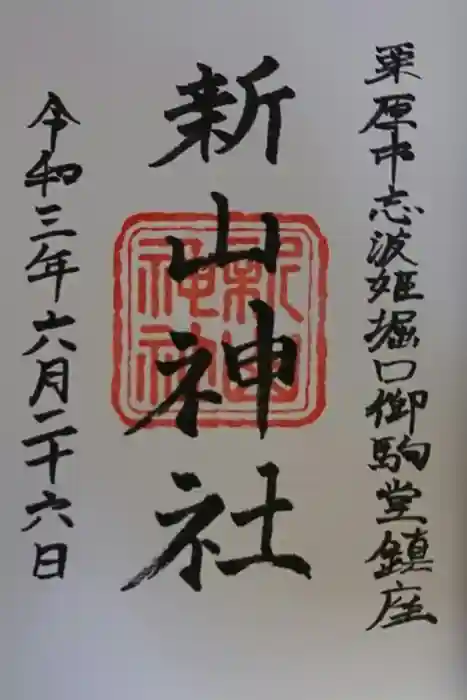 栗原市志波姫堀口御駒堂鎮座
新山神社
新山神社
令和三年六月二十六日